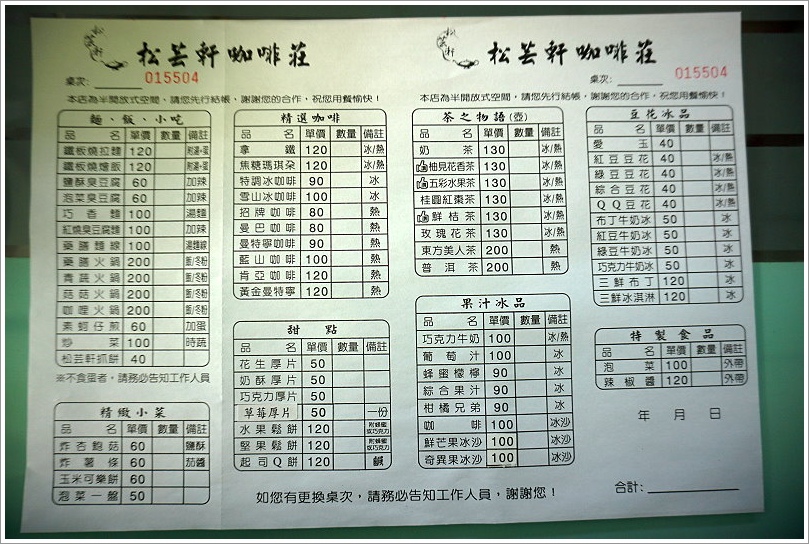 松芸軒
松芸軒咖啡莊
桌次: 015504
本店為半開放式空間，請您先行結帳，謝謝您的合作，祝您用餐愉快！
麵、飯、小吃
品名 單價 數量 備註
鐵板燒拉麵 120 附湯+蛋
鐵板燒燴飯 120 附湯+蛋
鹽酥臭豆腐 60 加辣
泡菜臭豆腐 60 加辣
巧香麵 100 湯麵
紅燒臭豆腐麵 100 加辣
藥膳麵線 100 湯麵線
藥膳火鍋 200 飯/冬粉
青蔬火鍋 200 飯/冬粉
菇菇火鍋 200 飯/冬粉
咖哩火鍋 200 飯/冬粉
素蚵仔煎 60 加蛋
炒菜 100 時蔬
松芸軒抓餅 40
※不食蛋者，請務必告知工作人員
精緻小菜
品名 單價 數量 備註
炸杏鮑菇 60 鹽酥
炸薯條 60 茄醬
玉米可樂餅 60
泡菜一盤 50
精選咖啡
品名 單價 數量 備註
拿鐵 120 冰/熱
焦糖瑪琪朵 120 冰/熱
特調冰咖啡 90 冰
雪山冰咖啡 100 冰
招牌咖啡 80 熱
曼巴咖啡 80 熱
曼特寧咖啡 90 熱
藍山咖啡 100 熱
肯亞咖啡 120 熱
黃金曼特寧 120 熱
甜點
品名 單價 數量 備註
花生厚片 50
奶酥厚片 50
巧克力厚片 50
草莓厚片 50 一份
水果鬆餅 120 附蜂蜜或巧克力
堅果鬆餅 120 附蜂蜜或巧克力
起司Q餅 120 鹹
松芸軒
松芸軒咖啡莊
桌次: 015504
本店為半開放式空間，請您先行結帳，謝謝您的合作，祝您用餐愉快！
茶之物語(壺)
品名 單價 數量 備註
奶茶 130 冰/熱
柚見花香茶 130 冰/熱
五彩水果茶 130 冰/熱
桂圓紅棗茶 130 冰/熱
鮮桔茶 130 冰/熱
玫瑰花茶 130 冰/熱
東方美人茶 200 熱
普洱茶 200 熱
果汁冰品
品名 單價 數量 備註
巧克力牛奶 100 冰/熱
葡萄汁 100 冰
蜂蜜檸檬 90 冰
綜合果汁 90 冰
柑橘兄弟 90 冰
咖啡 100 冰沙
鮮芒果冰沙 100 冰沙
奇異果冰沙 100 冰沙
豆花冰品
品名 單價 數量 備註
愛玉 40
紅豆豆花 40 冰/熱
綠豆豆花 40 冰/熱
綜合豆花 40 冰/熱
QQ豆花 40 冰/熱
布丁牛奶冰 50 冰
紅豆牛奶冰 50 冰
綠豆牛奶冰 50 冰
巧克力牛奶冰 50 冰
三鮮布丁 120 冰
三鮮冰淇淋 120 冰
特製食品
品名 單價 數量 備註
泡菜 100 外帶
辣椒醬 120 外帶
年 月 日
合計:
如您有更換桌次，請務必告知工作人員，謝謝您！